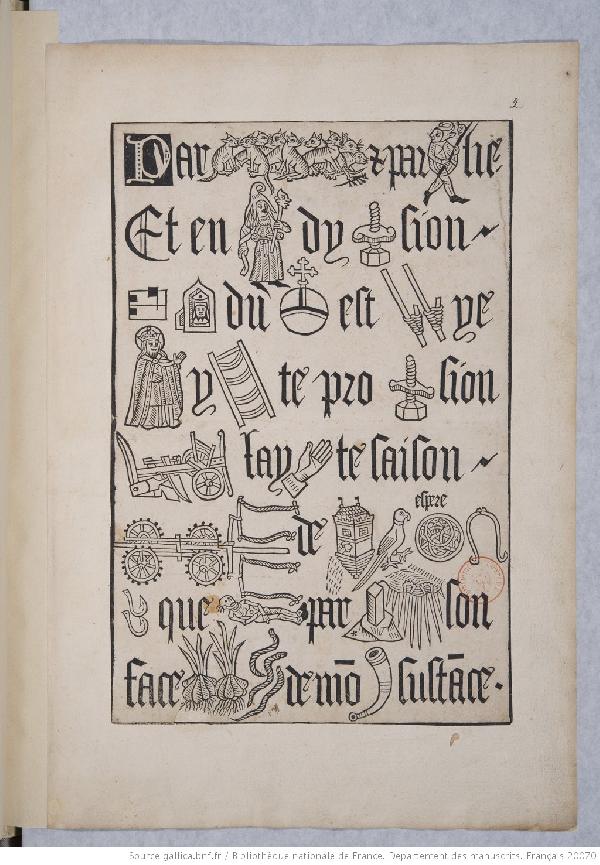 3
Par ⁊ par lie
Et en dy sion
dū est ye
y te pro sion
lay te saison
de espere
que par son
face de mō sustāce.
Source gallica.bnf.fr / Bibliothèque nationale de France. Département des manuscrits. Français 20070